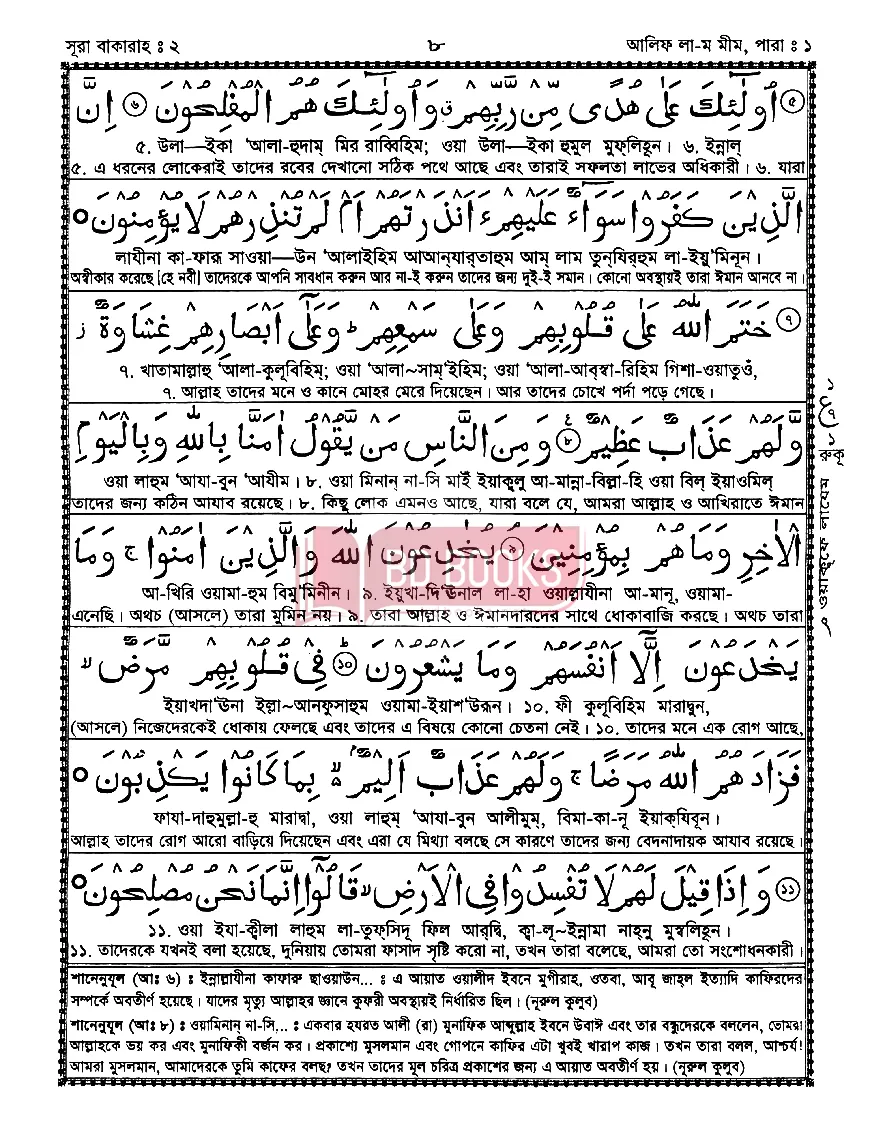 সূরা বাকারাহ ঃ ২ ৮ আলিফ লা-ম মীম, পারা ঃ ১
۝٥ أُولَٰئِكَ عَلَىٰ هُدًى مِّن رَّبِّهِمْ وَأُولَٰئِكَ هُمُ الْمُفْلِحُونَ ۝٦ إِنَّ
৫. উলা—ইকা 'আলা-হুদাম্ মির রাব্বিহিম; ওয়া উলা—ইকা হুমুল মুফ্‌লিহূন। ৬. ইন্নাল্
৫. এ ধরনের লোকেরাই তাদের রবের দেখানো সঠিক পথে আছে এবং তারাই সফলতা লাভের অধিকারী। ৬. যারা
الَّذِينَ كَفَرُوا سَوَاءٌ عَلَيْهِمْ ءَأَنذَرْتَهُمْ أَمْ لَمْ تُنذِرْهُمْ لَا يُؤْمِنُونَ ○
লাযীনা কা-ফারূ সাওয়া—উন 'আলাইহিম আআন্‌যার্‌তাহুম আম্ লাম তুন্‌যির্‌হুম লা-ইয়ু'মিনূন।
অস্বীকার করেছে [হে নবী] তাদেরকে আপনি সাবধান করুন আর না-ই করুন তাদের জন্য দুই-ই সমান। কোনো অবস্থায়ই তারা ঈমান আনবে না।
۝٧ خَتَمَ اللَّهُ عَلَىٰ قُلُوبِهِمْ وَعَلَىٰ سَمْعِهِمْ ط وَعَلَىٰ أَبْصَارِهِمْ غِشَاوَةٌ ز
৭. খাতামাল্লাহু 'আলা-কুলূবিহিম; ওয়া 'আলা~সাম্'ইহিম; ওয়া 'আলা-আব্‌স্বা-রিহিম গিশা-ওয়াতুওঁ,
৭. আল্লাহ তাদের মনে ও কানে মোহর মেরে দিয়েছেন। আর তাদের চোখে পর্দা পড়ে গেছে।
وَّلَهُمْ عَذَابٌ عَظِيمٌ ۝٨ وَمِنَ النَّاسِ مَن يَقُولُ آمَنَّا بِاللَّهِ وَبِالْيَوْمِ
ওয়া লাহুম 'আযা-বুন 'আযীম। ৮. ওয়া মিনান্ না-সি মাইঁ ইয়াকুলু আ-মান্না-বিল্লা-হি ওয়া বিল্ ইয়াওমিল্
তাদের জন্য কঠিন আযাব রয়েছে। ৮. কিছু লোক এমনও আছে, যারা বলে যে, আমরা আল্লাহ ও আখিরাতে ঈমান
الْآخِرِ وَمَا هُم بِمُؤْمِنِينَ ۝٩ يُخَادِعُونَ اللَّهَ وَالَّذِينَ آمَنُوا ج وَمَا
BD BOOKS
আ-খিরি ওয়ামা-হুম বিমু'মিনীন। ৯. ইয়ুখা-দি'ঊনাল লা-হা ওয়াল্লাযীনা আ-মানূ, ওয়ামা-
এনেছি। অথচ (আসলে) তারা মুমিন নয়। ৯. তারা আল্লাহ ও ঈমানদারদের সাথে ধোকাবাজি করছে। অথচ তারা
يَخْدَعُونَ إِلَّا أَنفُسَهُمْ وَمَا يَشْعُرُونَ ط ۝١٠ فِي قُلُوبِهِم مَّرَضٌ لا
ইয়াখদা'ঊনা ইল্লা~আনফুসাহুম ওয়ামা-ইয়াশ'উরূন। ১০. ফী কুলূবিহিম মারাদ্বুন,
(আসলে) নিজেদেরকেই ধোকায় ফেলছে এবং তাদের এ বিষয়ে কোনো চেতনা নেই। ১০. তাদের মনে এক রোগ আছে,
فَزَادَهُمُ اللَّهُ مَرَضًا ج وَلَهُمْ عَذَابٌ أَلِيمٌ بِمَا كَانُوا يَكْذِبُونَ ○
ফাযা-দাহুমুল্লা-হু মারাদ্বা, ওয়া লাহুম্ 'আযা-বুন আলীমুম্, বিমা-কা-নূ ইয়াক্‌যিবূন।
আল্লাহ তাদের রোগ আরো বাড়িয়ে দিয়েছেন এবং এরা যে মিথ্যা বলছে সে কারণে তাদের জন্য বেদনাদায়ক আযাব রয়েছে।
۝١١ وَإِذَا قِيلَ لَهُمْ لَا تُفْسِدُوا فِي الْأَرْضِ لا قَالُوا إِنَّمَا نَحْنُ مُصْلِحُونَ ○
১১. ওয়া ইযা-ক্বীলা লাহুম লা-তুফ্‌সিদূ ফিল আর্‌দ্বি, ক্বা-লূ~ইন্নামা নাহ্‌নু মুস্বলিহূন।
১১. তাদেরকে যখনই বলা হয়েছে, দুনিয়ায় তোমরা ফাসাদ সৃষ্টি করো না, তখন তারা বলেছে, আমরা তো সংশোধনকারী।
শানেনুযূল (আঃ ৬) ঃ ইন্নাল্লাযীনা কাফারু ছাওয়াউন... ঃ এ আয়াত ওয়ালীদ ইবনে মুগীরাহ, ওতবা, আবূ জাহল ইত্যাদি কাফিরদের
সম্পর্কে অবতীর্ণ হয়েছে। যাদের মৃত্যু আল্লাহর জ্ঞানে কুফরী অবস্থায়ই নির্ধারিত ছিল। (নূরুল কুলূব)
শানেনুযূল (আঃ ৮) ঃ ওয়ামিনান্ না-সি... ঃ একবার হযরত আলী (রা) মুনাফিক আব্দুল্লাহ ইবনে উবাঈ এবং তার বন্ধুদেরকে বললেন, তোমরা
আল্লাহকে ভয় কর এবং মুনাফিকী বর্জন কর। প্রকাশ্যে মুসলমান এবং গোপনে কাফির এটা খুবই খারাপ কাজ। তখন তারা বলল, আশ্চর্য!
আমরা মুসলমান, আমাদেরকে তুমি কাফের বলছ? তখন তাদের মূল চরিত্র প্রকাশের জন্য এ আয়াত অবতীর্ণ হয়। (নূরুল কুলূব)
১
ع
৭
১
রুকূ
ওয়াকুফে লাযেম